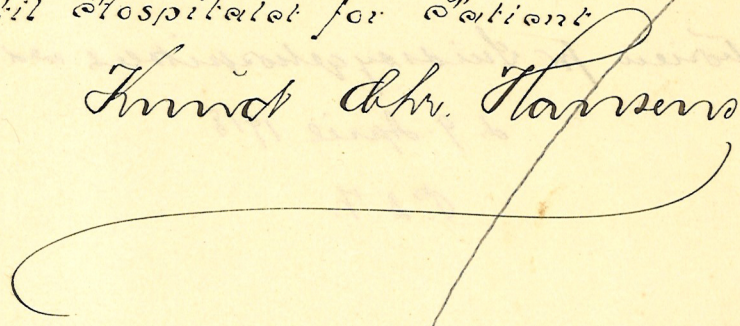 til Hospitalet for Patient
Knud Chr. Hansens